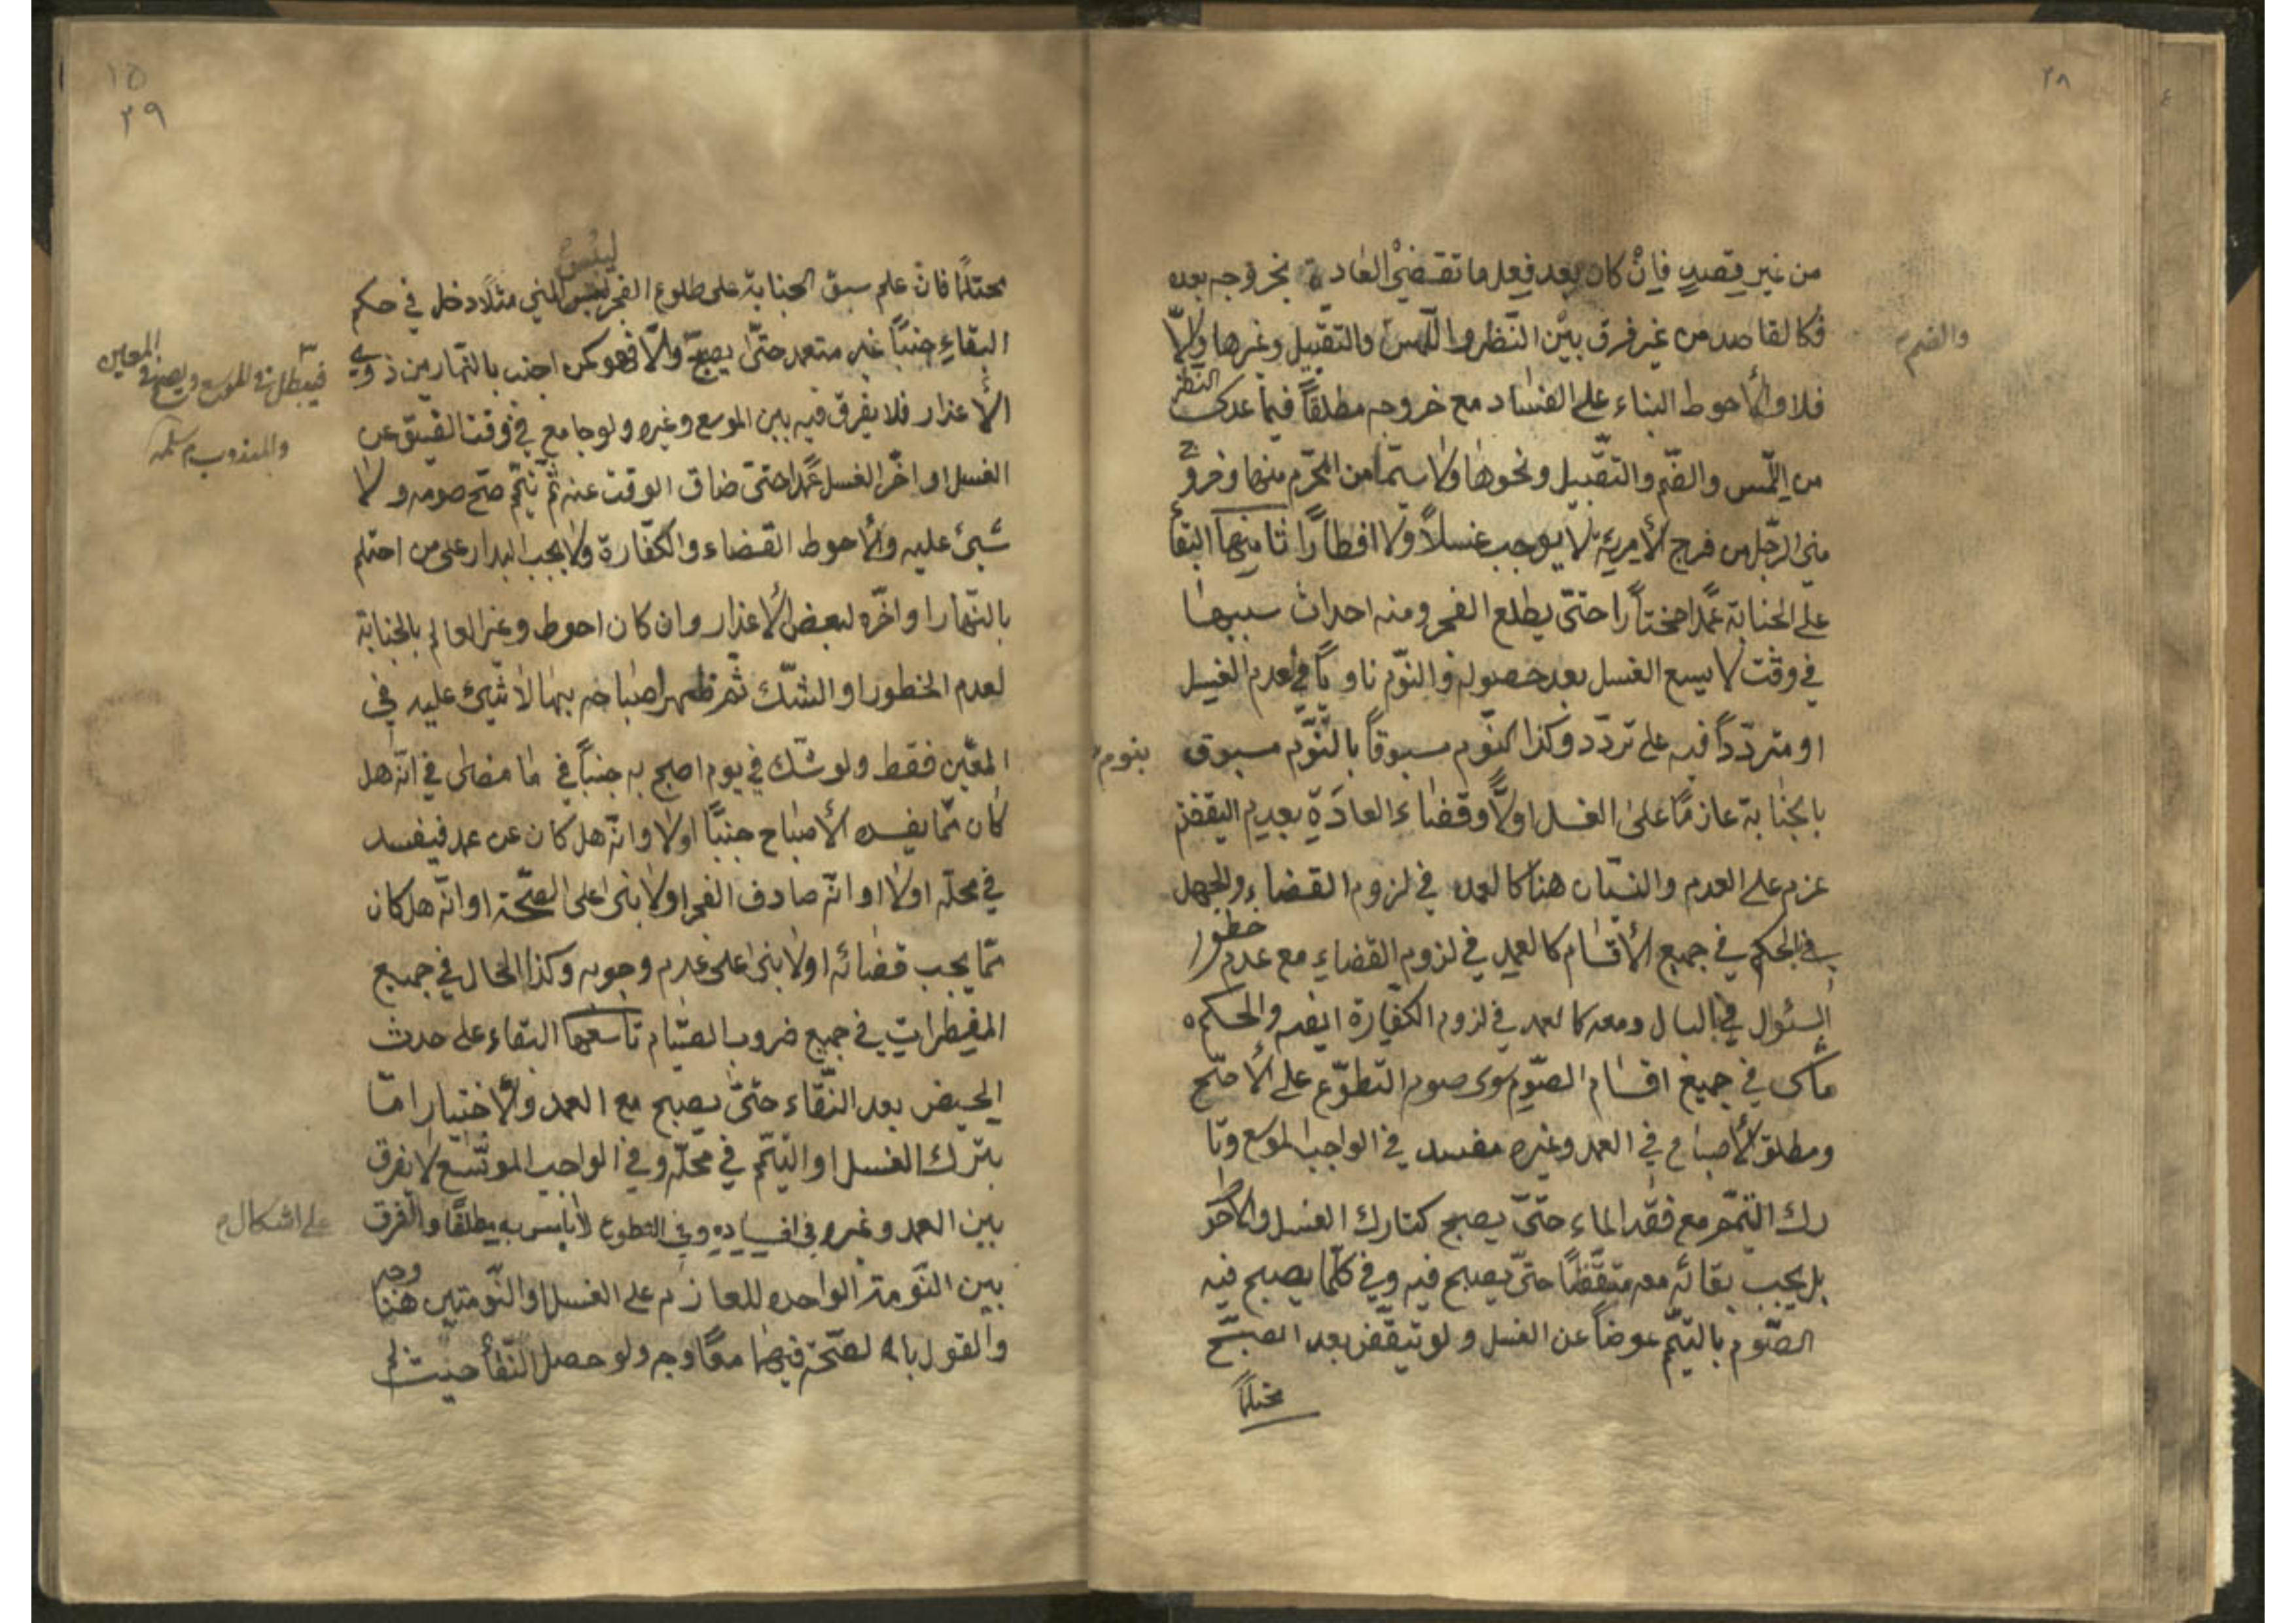 ٢٨
من غير قصد فإن كان بعد فعل ما تقضي العادة بخروجه بعده
فكالقاصد من غير فرق بين النظر واللمس والتقبيل وغيرها وإلّا
والضم
فلا والأحوط البناء على الفساد مع خروجه مطلقاً فيما عدى النظر
من اللّمس والضّم والتقبيل ونحوها ولا سيّما من المحرّم منها وخروج
مني الرّجل من فرج الأمرية لا يوجب غسلاً ولا افطاراً ثامنها البقاء
على الجنابة عمداً مختاراً حتّى يطلع الفجر ومنه احداث سببها
في وقت لا يسع الغسل بعد حصوله والنّوم ناوياً في عدم الغسل
او متردّداً فيه على تردّد وكذا النّوم مسبوقاً بالنّوم مسبوق بنوم
بالجنابة عازمًا على الغسل اولًا وقضاء العادة بعدم اليقضة
عزم على العدم والنسيان هنا كالعمد في لزوم القضاء والجهل
في الحكم في جميع الأقسام كالعمد في لزوم القضاء مع عدم خطور
السئوال في البال ومعه كالعمد في لزوم الكفّارة ايضه والحكم
في جميع اقسام الصّوم سوى صوم التطوّع على الأصّح
ومطلق الأصباح في العمد وغيره مفسد في الواجب الموسع وتا
رك التيمّم مع فقد الماء حتّى يصبح كتارك الغسل والأحوط
بل يجب بقائه معه متيقّظاً حتّى يصبح فيه وفي كلّما يصبح فيه
الصّوم بالتيمّم عوضاً عن الغسل ولو تيقّض بعد الصبح
محتلمًا
١٥
٢٩
محتلمًا فان علم سبق الجنابة على طلوع الفجر ليبس المني مثلًا دخل في حكم
ليبس
البقاء جنبًا غير متعمد حتّى يصبح وإلّا فهو كمن اجنب بالنّهار من ذوي
فيبطل في الموسع ويصح في المعين
والمندوب
الأعذار فلا يفرق فيه بين الموسع وغيره ولو جامع في وقت الضيق عن
الغسل او اخّر الغسل عمدًا حتى ضاق الوقت عنه ثم تيمّم صحّ صومه ولا
شيئ عليه والأحوط القضاء والكفّارة ولا يجب البدار على من احتلم
بالنّهار او اخّره لبعض الأعذار وان كان احوط وغير العالم بالجنابة
لعدم الخطور او الشّك ثم ظهر اصباحه بها لا شيئ عليه في
المعّين فقط ولو شّك في يوم اصبح به جنباً في ما مضى في انّه هل
كان ممّا يفسده الأصباح جنبًا اولا وانّه هل كان عن عمد فيفسد
في محلّه اولا او انّه صادف الفجر اولا بنى على الصّحّة او انّه هل كان
ممّا يجب قضائه اولا بنى على عدم وجوبه وكذا الحال في جميع
المفطرات في جميع ضروب الصّيام تاسعها البقاء على حدث
الحيض بعد النّقاء حتّى يصبح مع العمد والأختيار امّا
بترك الغسل او التيمّم في محلّه وفي الواجب الموسّع لا يفرق
بين العمد وغيره في افساده وفي التطوع لا بأس به مطلقًا والفرق
على اشكال
بين النّومة الواحده للعازم على الغسل والنّومتين هنا وجه
والقول بالصّحّة فيهما معًا وجه ولو حصل النّقأ حيث لم